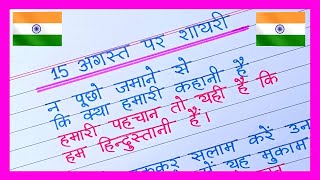 15 अगस्त पर शायरी
न पूछो जमाने से
कि क्या हमारी कहानी है
हमारी पहचान तो यही है कि
हम हिन्दुस्तानी है।
सलाम करें उन
यह मुकाम